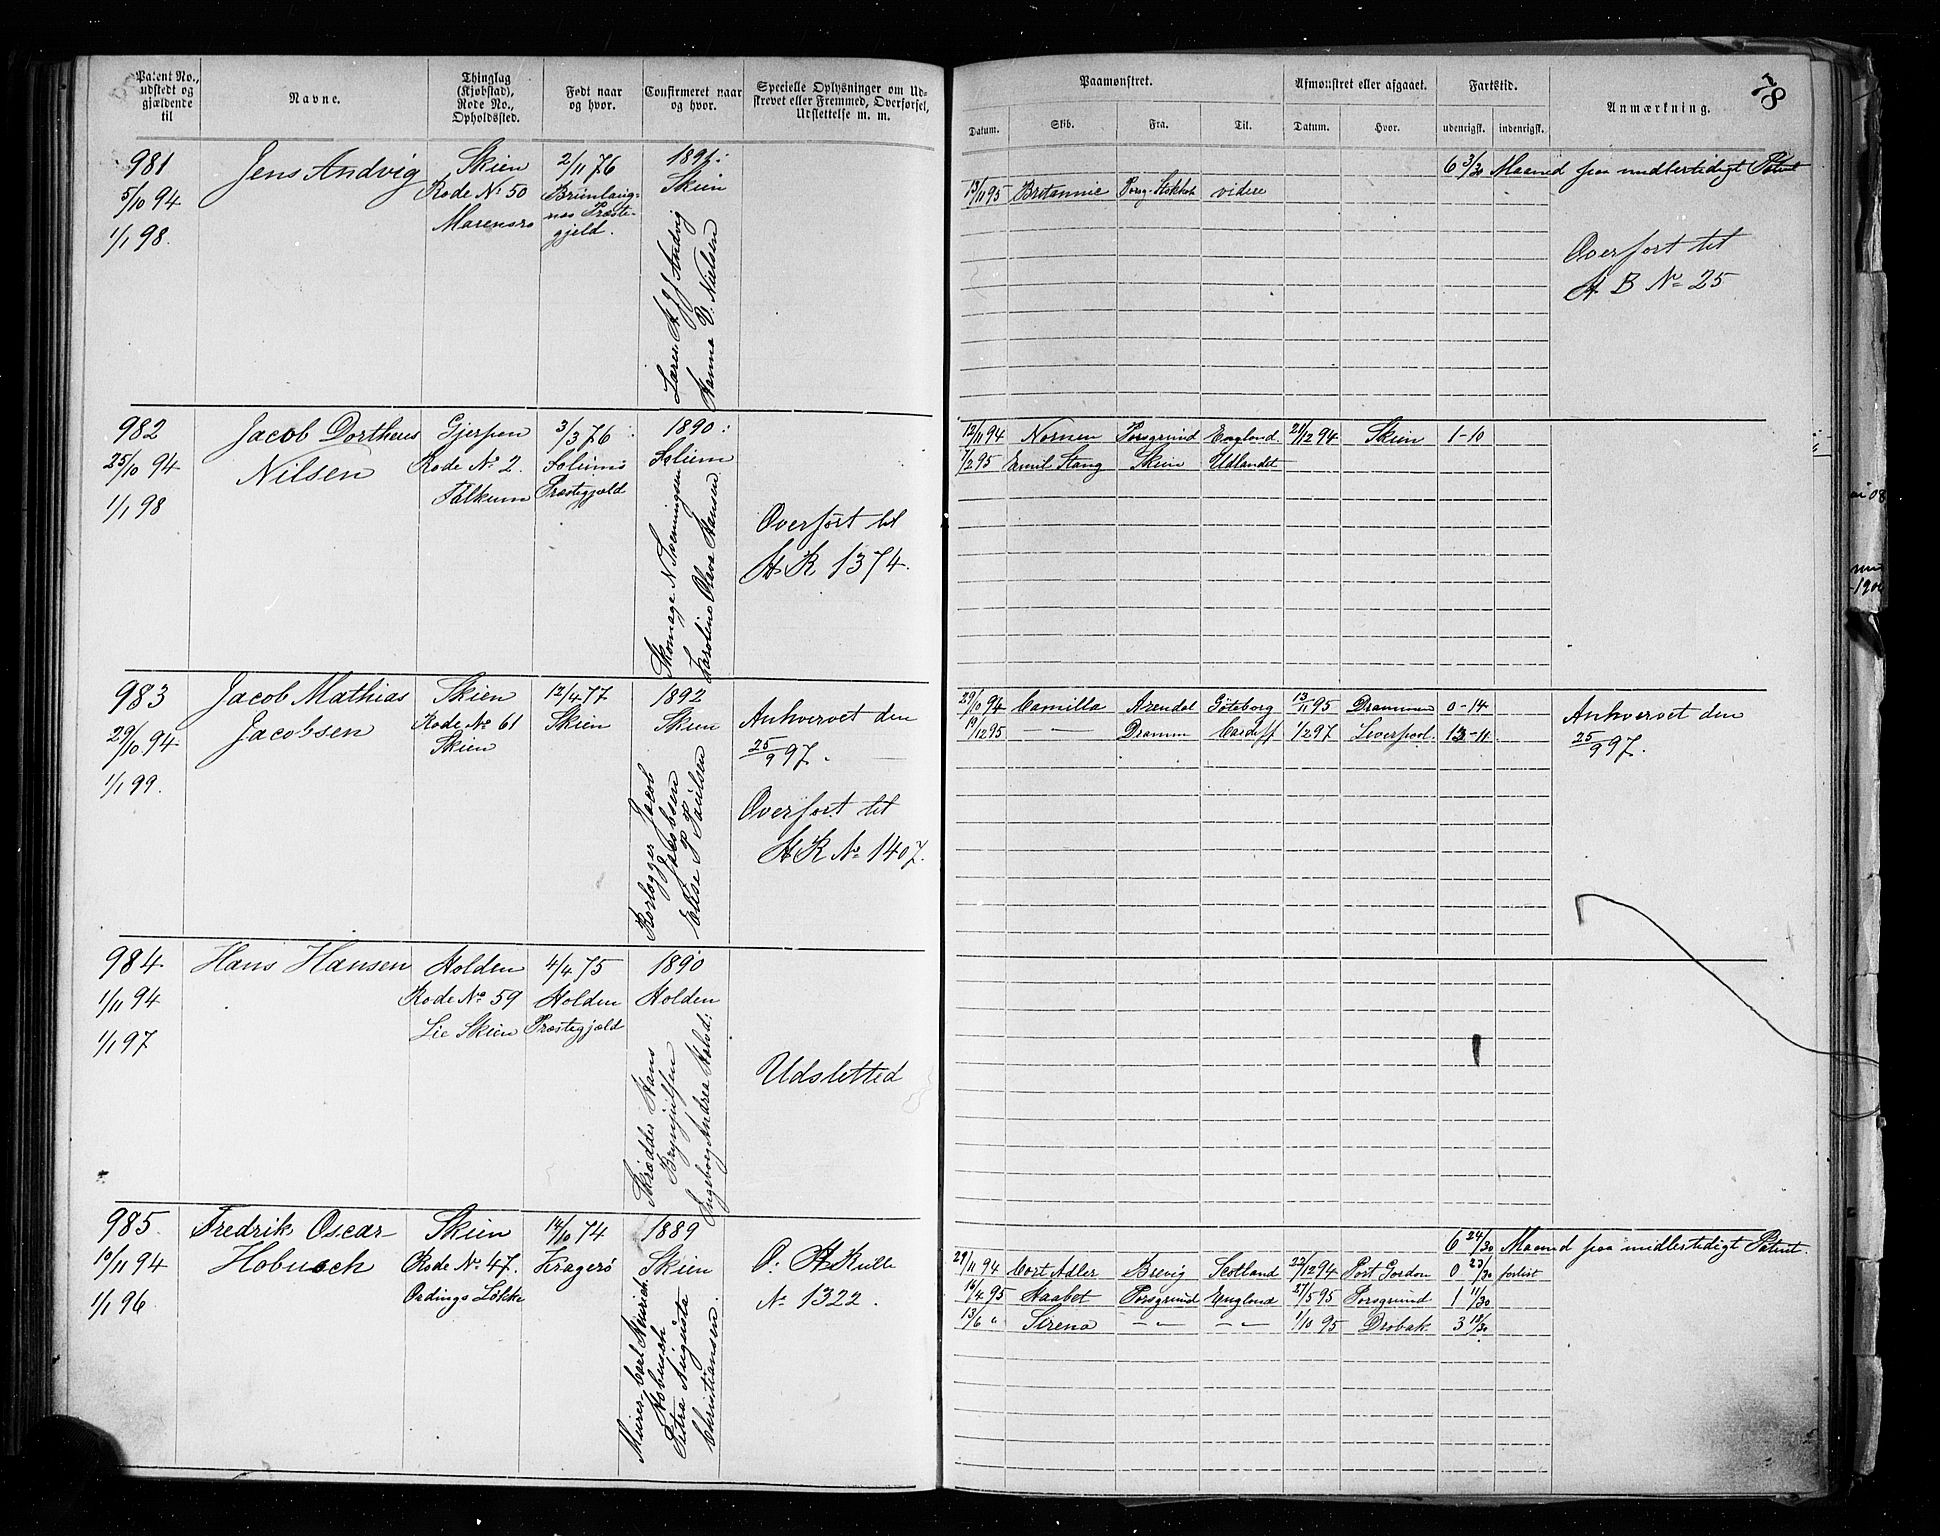 Patent No., udstedt og gjældende til
Navne.
Thinglag (Kjøbstad), Rode No., Opholdssted.
Født naar og hvor.
Confirmeret naar og hvor.
Specielle Oplysninger om Udskrevet eller Fremmed, Overførsel, Udslettelse m. m.
Paamønstret.
Afmønstret eller afgaaet.
Fartstid.
Anmærkning.
78
Datum.
Skib.
Fra.
Til.
Datum.
Hvor.
udenrigsk.
indenrigsk.
981
5/10 94
1/1 98.
Jens Andvig
Skien
Rode No 50
Marensro
2/11 76
Brunlaug-
næs Præste-
gjeld.
1891:
Skien
Lærer A J J Andvig
Hanna V. Nielsen
6 3/30 Maaned paa midlertidigt Patent
13/11 95 Britannie Porsg. Stokkh videre
Overført til
A B No 25
982
25/10 94
1/1 98
Jacob Dortheus
Nilsen
Gjerpen
Rode No 2.
Falkum
3/3 76
Solums
Præstegjeld
1890:
Solum
Skomager N Sveningsen
Karoline Oleva Hansen
Overført til
H R 1374.
12/11 94 Nornen Porsgrund England. 21/12 94 Skien 1-10
7/2 95 Emil Stang Skien Udlandet
983
29/10 94
1/1 99.
Jacob Mathias
Jacobsen
Skien
Rode No 61
Skien
12/4 77
Skien
1892
Skien
Kortægger Jacob
Jacobsen
Elise P. Paulsen
Ankvervet den
25/9 97.
Overført til
H R No 1407.
29/10 94 Camilla Arendal Göteborg 13/11 95 Drammen 0-14
19/12 95 — — Dramm Cardiff 1/2 97 Liverpool. 13-11
Ankvervet den
25/9 97.
984
1/11 94
1/1 97
Hans Hansen
Holden
Rode No 59
Lie Skien
4/4 75
Holden
Præstegjeld
1890
Holden
Skrædder Hans
Brynjulfsen
Ingeborg Andrea Halvd:
Udsletted
985.
19/11 94
1/1 96
Fredrik Oscar
Hobusch
Skien
Rode No 47.
Ordings Løkke
14/10 74
Kragerø
1889
Skien
Murer Carl Heinrich
Hobusch
Petra Augusta
Christiansen.
O: H Rulle
No 1322.
6 24/30 Maaned paa midlertidigt Patent.
29/11 94 Cort Adler Brevig Scotland 22/12 94 Port Gordon 0 23/30 forlist
16/4 95 Haabet Porsgrund England 27/5 95 Porsgrund 1 11/30
13/6 " Sirena — " — — " — 1/10 95 Drøbak 3 18/30